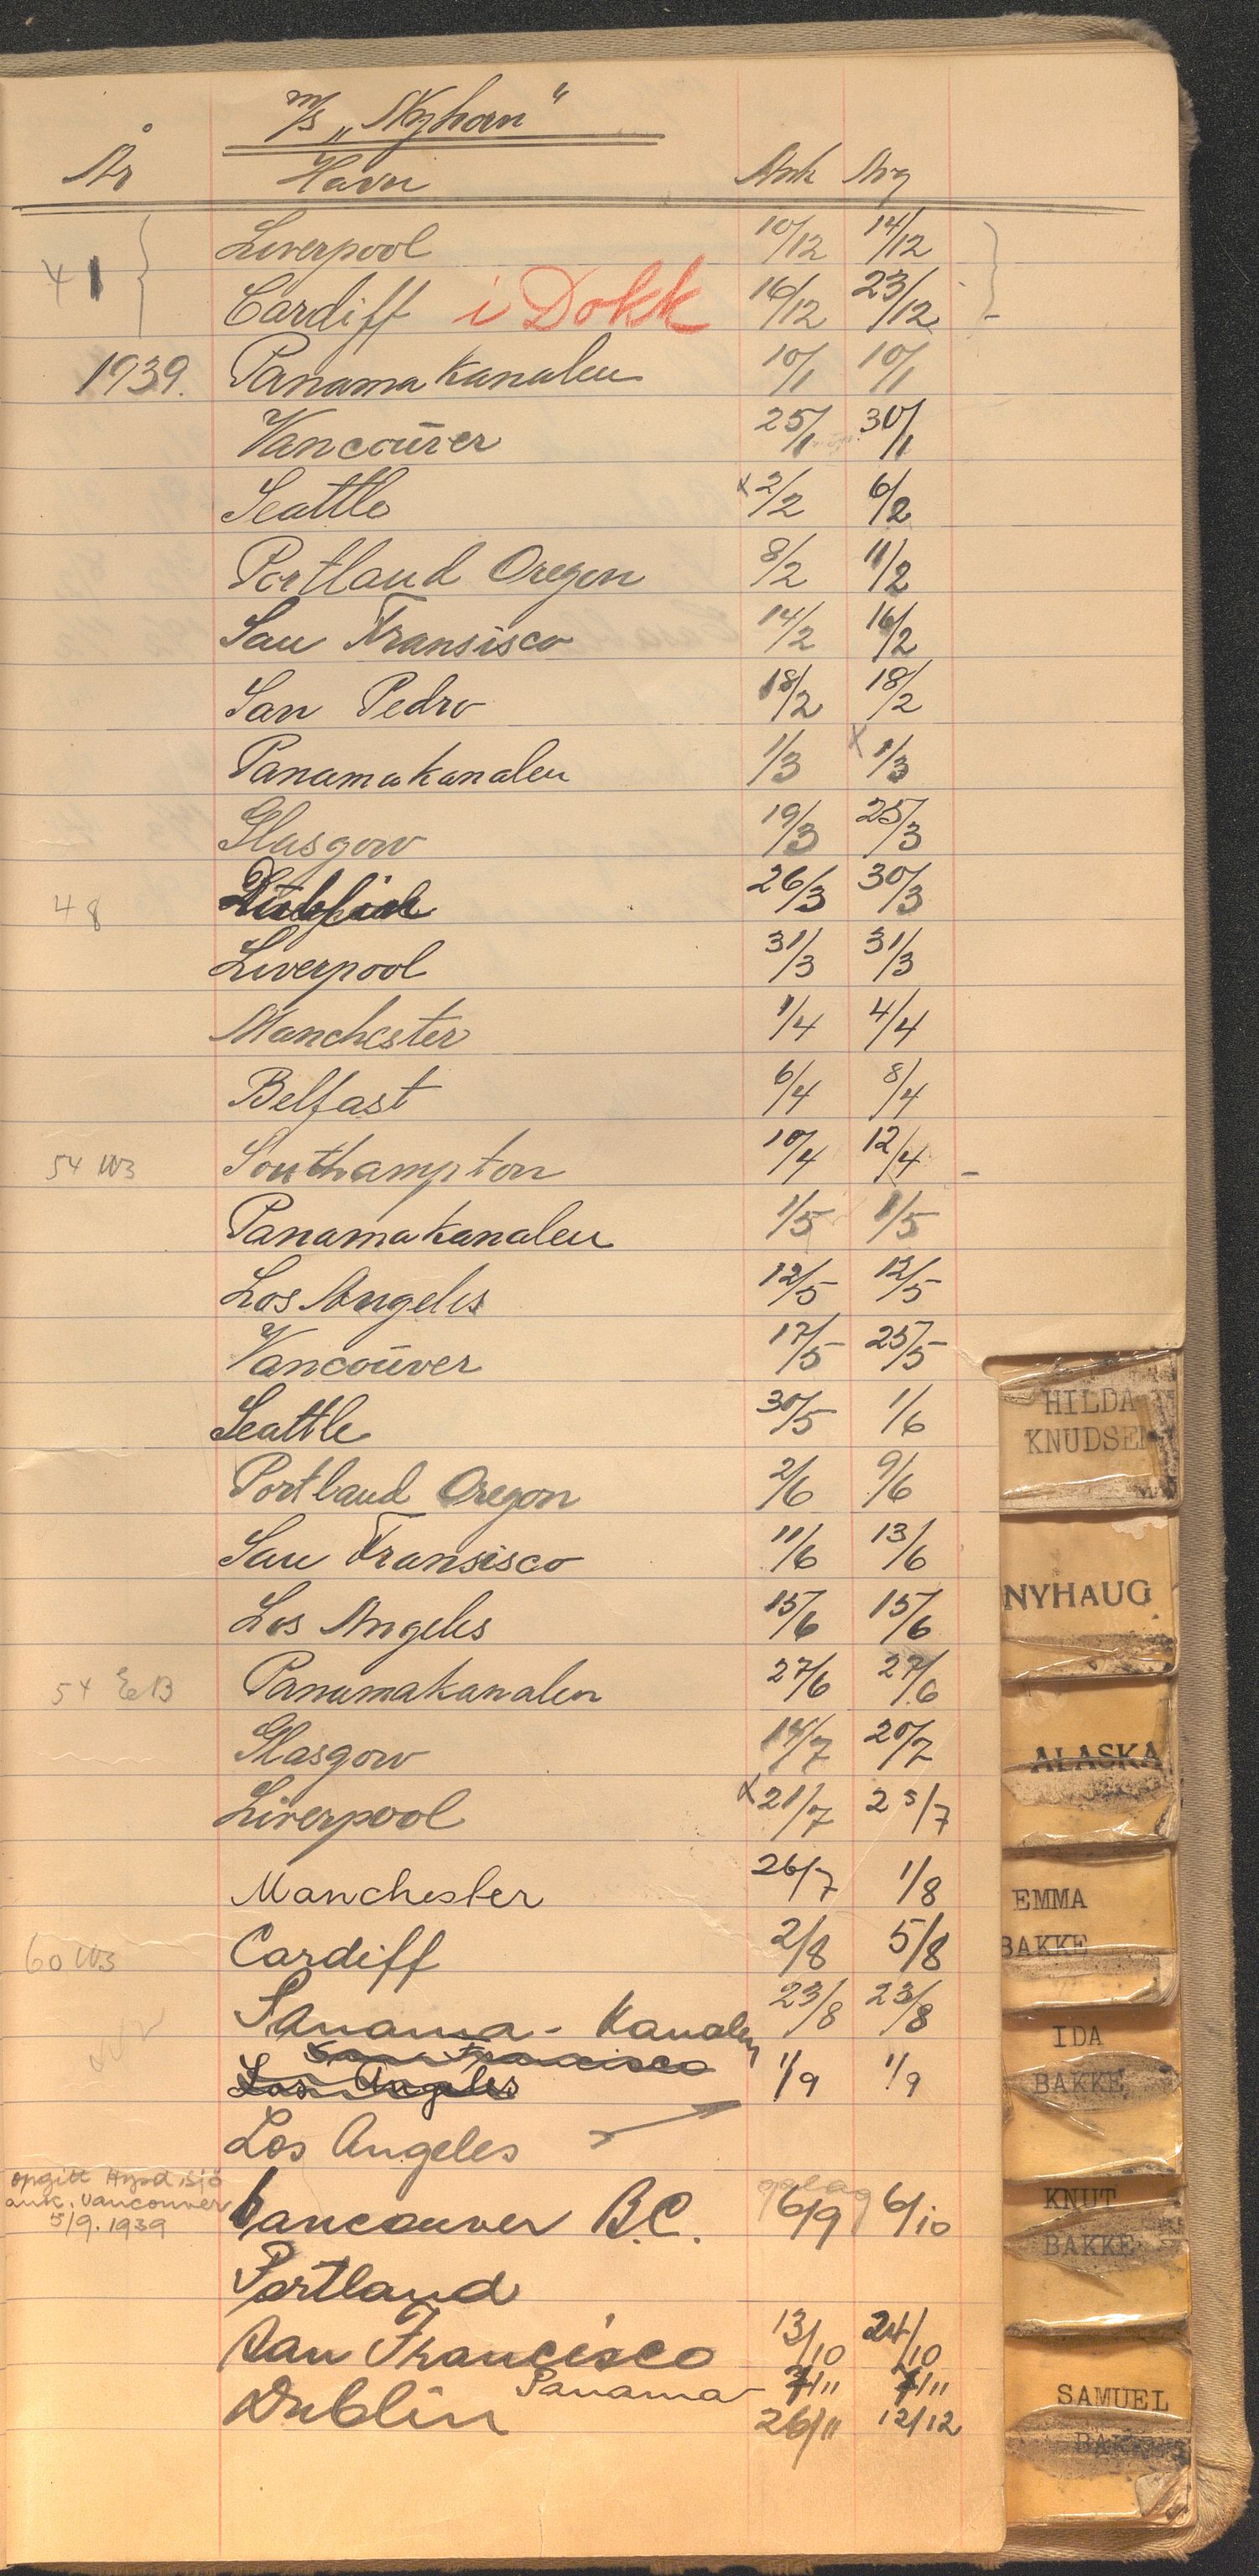 M/S „Nyhorn"
År Havn Ank Avg
Liverpool 10/12 14/12
41 Cardiff i Dokk 16/12 23/12
1939. Panamakanalen 10/1 10/1
Vancouver 25/1 30/1
Seattle x 2/2 6/2
Portland Oregon 8/2 11/2
San Fransisco 14/2 16/2
San Pedro 18/2 18/2
Panamakanalen 1/3 x 1/3
Glasgow 19/3 25/3
48 Dublin 26/3 30/3
Liverpool 31/3 31/3
Manchester 1/4 4/4
Belfast 6/4 8/4
54 W3 Southampton 10/4 12/4
Panamakanalen 1/5 1/5
Los Angeles 12/5 12/5
Vancouver 17/5 25/5
Seattle 30/5 1/6
Portland Oregon 2/6 9/6
San Fransisco 11/6 13/6
Los Angeles 15/6 15/6
54 EB Panamakanalen 27/6 27/6
Glasgow 14/7 20/7
Liverpool x 21/7 25/7
Manchester 26/7 1/8
60 W3 Cardiff 2/8 5/8
Panama - Kanalen 23/8 23/8
San Francisco
Los Angeles 1/9 1/9
Los Angeles
opgitt
ank. Vancouver
5/9. 1939
Vancouver B.C. oplag 6/9 6/10
Portland
San Francisco 13/10 24/10
Panama 7/11 7/11
Dublin 26/11 12/12
HILDA
KNUDSEN
NYHAUG
ALASKA
EMMA
BAKKE
IDA
BAKKE
KNUT
BAKKE
SAMUEL
BAKKE